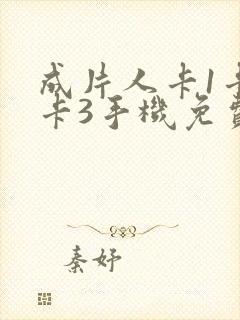 成片人卡1卡
卡3手機免費
秦妤